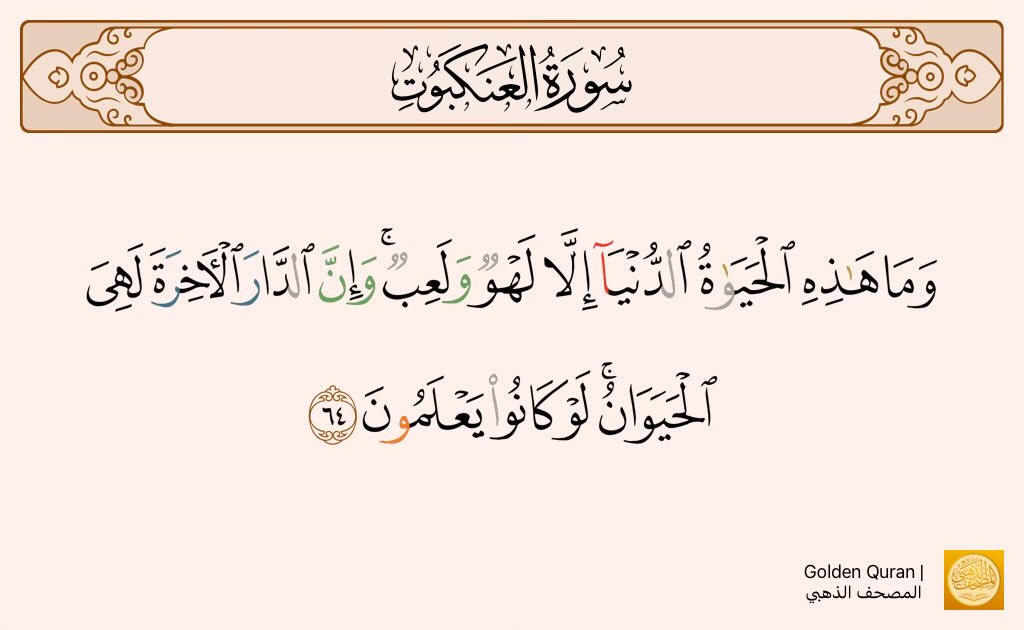 سُورَةُ العَنكَبُوتِ
وَمَا هَٰذِهِ ٱلْحَيَوٰةُ ٱلدُّنْيَآ إِلَّا لَهْوٌ وَلَعِبٌ ۚ وَإِنَّ ٱلدَّارَ ٱلْأَخِرَةَ لَهِىَ
ٱلْحَيَوَانُ ۚ لَوْ كَانُوا۟ يَعْلَمُونَ ٦٤
Golden Quran |
المصحف الذهبي